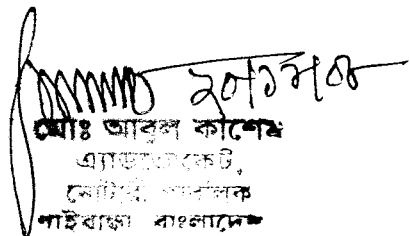 মোঃ আবুল কাশেম
এ্যাডভোকেট,
নোটারী পাবলিক
গাইবান্ধা বাংলাদেশ